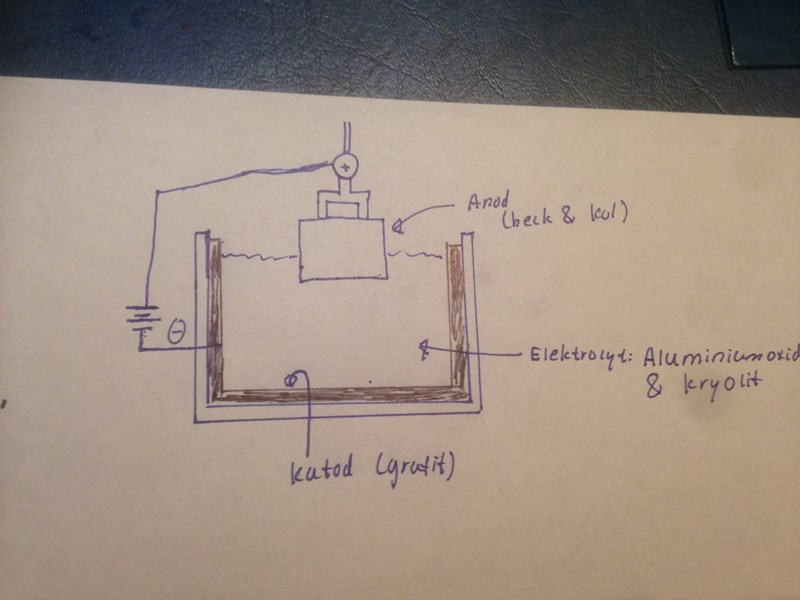 +
Anod
(beck & kol)
⊖
Elektrolyt: Aluminiumoxid
& kryolit
katod (grafit)